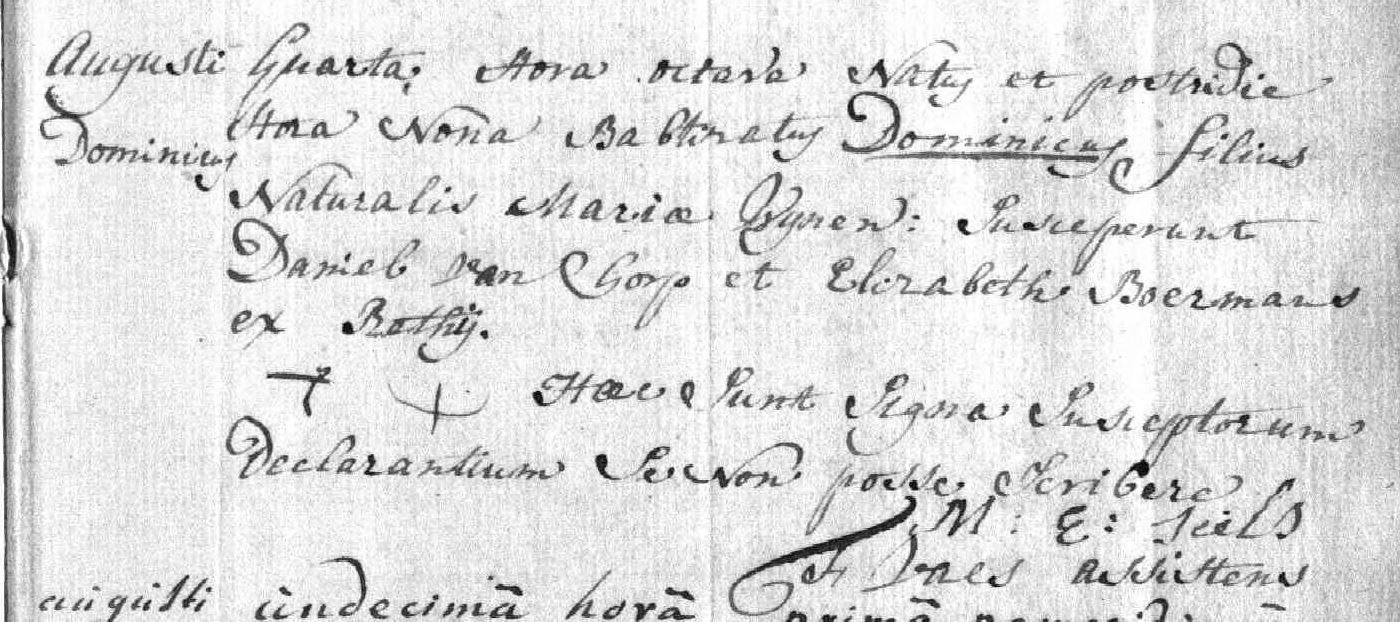 Augusti Quarta, Hora octava Natus et postridie
Dominicus Hora Nona Babtizatus Dominicus filius
Naturalis Mariæ Wynen: Susceperunt
Daniel van Gorp et Elizabeth Boermans
ex Rethÿ.
Hæc Sunt Signa Susceptorum
Declarantium Se Non posse Scribere
M: E: Seils
F Vaes assistens
augusti undecimâ horâ primâ